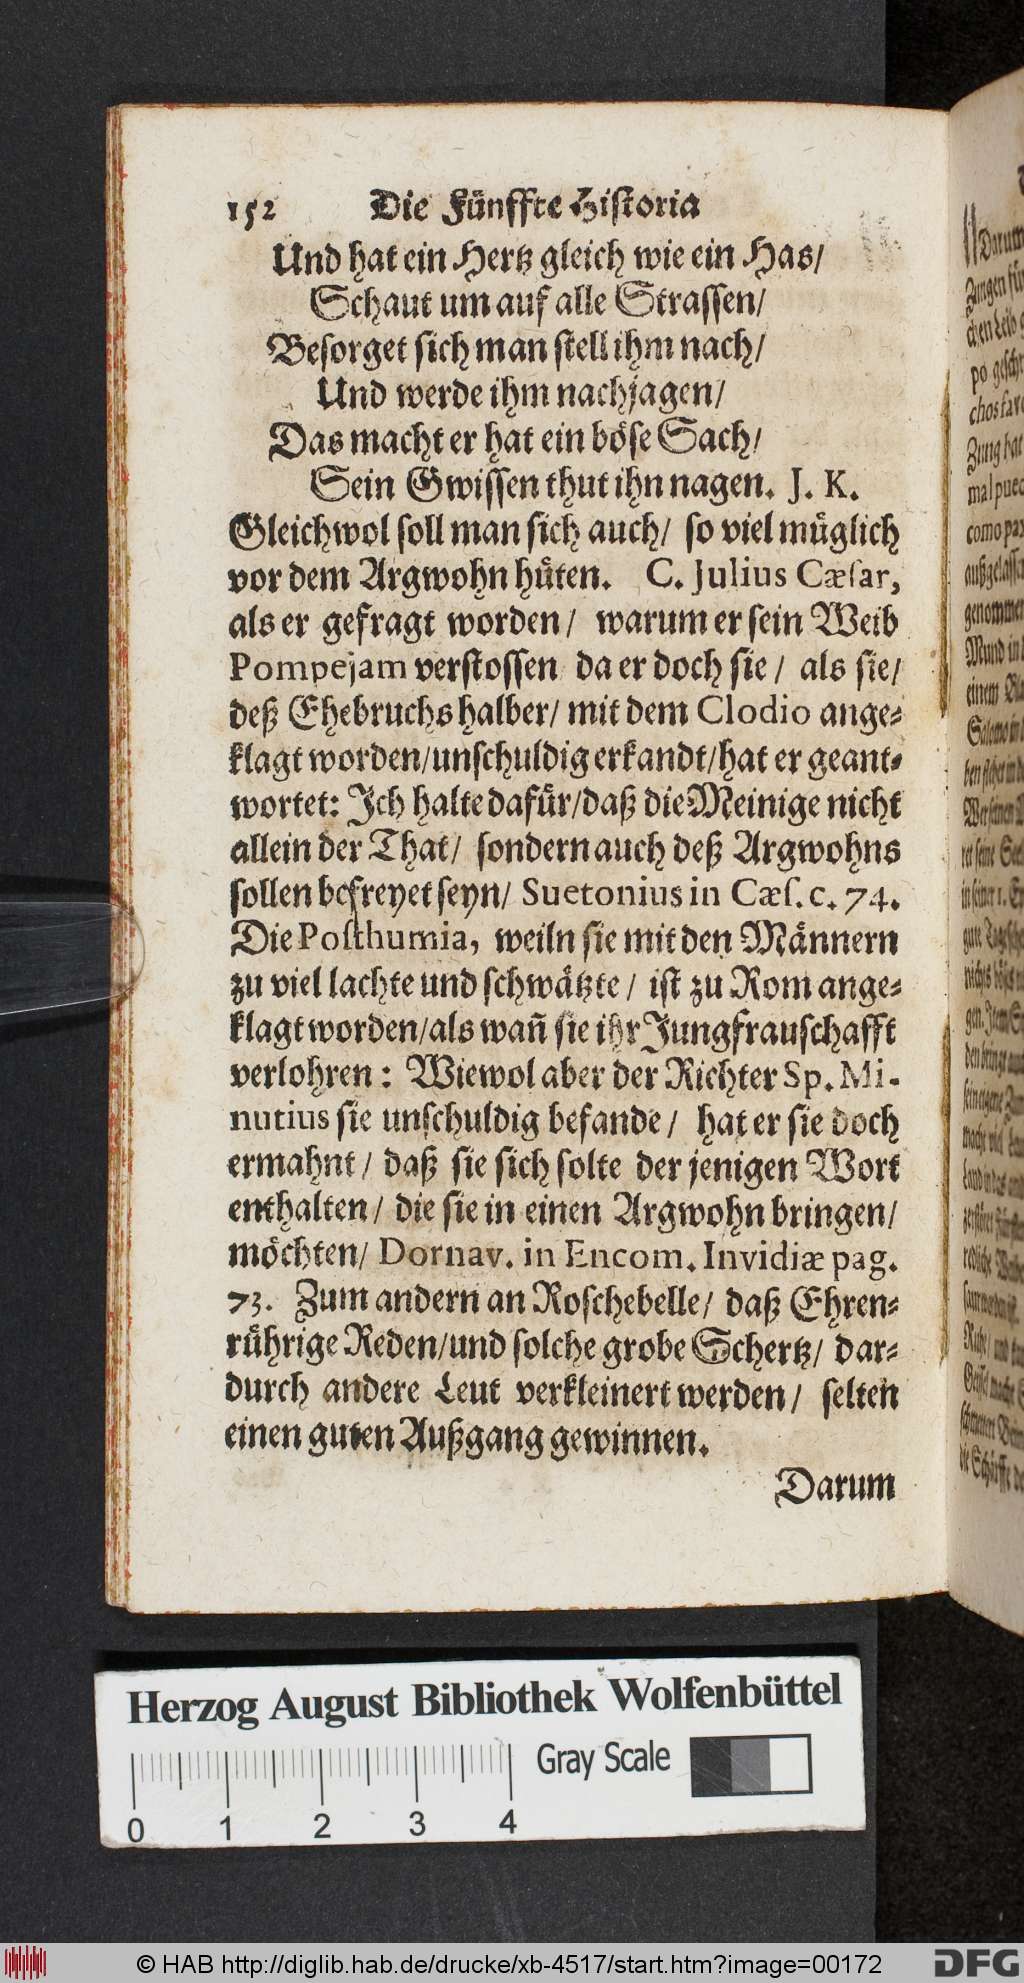 152 Die Fünffte Historia
Und hat ein Hertz gleich wie ein Has/
Schaut um auf alle Strassen/
Besorget sich man stell ihm nach/
Und werde ihm nachjagen/
Das macht er hat ein böse Sach/
Sein Gwissen thut ihn nagen. J. K.
Gleichwol soll man sich auch/ so viel müglich
vor dem Argwohn hüten. C. Julius Cæsar,
als er gefragt worden/ warum er sein Weib
Pompejam verstossen da er doch sie/ als sie/
deß Ehebruchs halber/ mit dem Clodio ange⸗
klagt worden/unschuldig erkandt/hat er geant⸗
wortet: Ich halte dafür/daß die Meinige nicht
allein der That/ sondern auch deß Argwohns
sollen befreyet seyn/ Suetonius in Cæs. c. 74.
Die Posthumia, weiln sie mit den Männern
zu viel lachte und schwätzte/ ist zu Rom ange⸗
klagt worden/als wañ sie ihr Jungfrauschafft
verlohren: Wiewol aber der Richter Sp. Mi-
nutius sie unschuldig befande/ hat er sie doch
ermahnt/ daß sie sich solte der jenigen Wort
enthalten/ die sie in einen Argwohn bringen/
möchten/ Dornav. in Encom. Invidiæ pag.
73. Zum andern an Roschebelle/ daß Ehren⸗
rührige Reden/und solche grobe Schertz/ dar⸗
durch andere Leut verkleinert werden/ selten
einen guten Außgang gewinnen.
Darum
Herzog August Bibliothek Wolfenbüttel
Gray Scale
0 1 2 3 4
© HAB http://diglib.hab.de/drucke/xb-4517/start.htm?image=00172
DFG